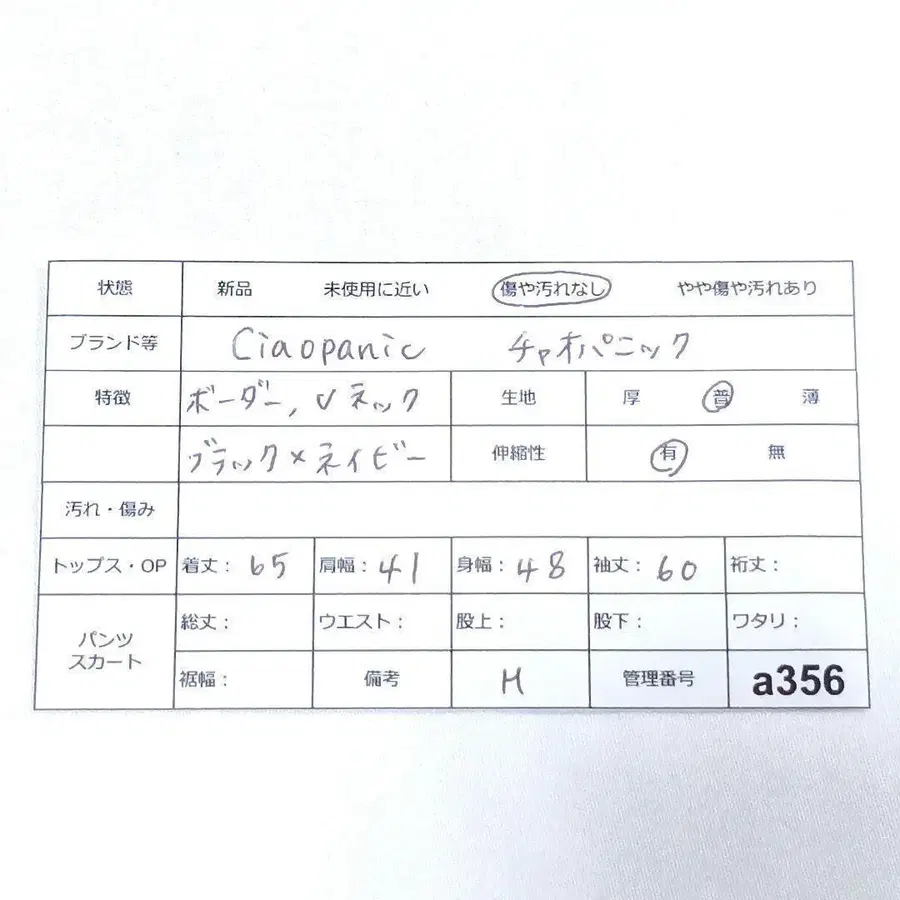 状態 新品 未使用に近い 傷や汚れなし やや傷や汚れあり
ブランド等 Ciaopanic チャオパニック
特徴 ボーダー, Vネック 生地 厚 普 薄
ブラック×ネイビー 伸縮性 有 無
汚れ・傷み
トップス・OP 着丈: 65 肩幅: 41 身幅: 48 袖丈: 60 裄丈:
パンツ スカート 総丈: ウエスト: 股上: 股下: ワタリ:
裾幅: 備考 H 管理番号 a356